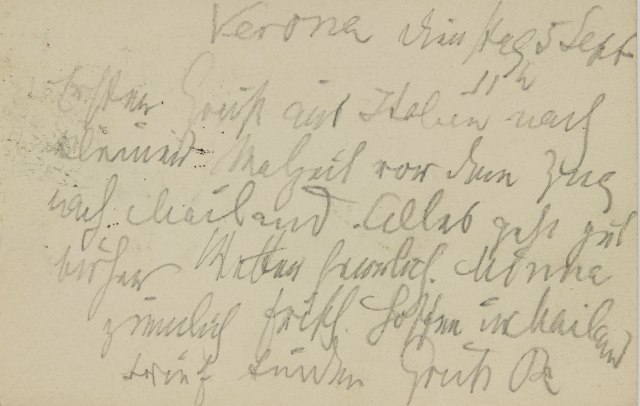 Verona Dienstag 5 Sept
11 h
Ersten Gruß aus Italien nach
kleiner Malzeit vor dem Zug
nach Mailand. Alles geht gut
bisher Wetter Minna
ziemlich frisch. Hoffen in Mailand
zu finden Gruß